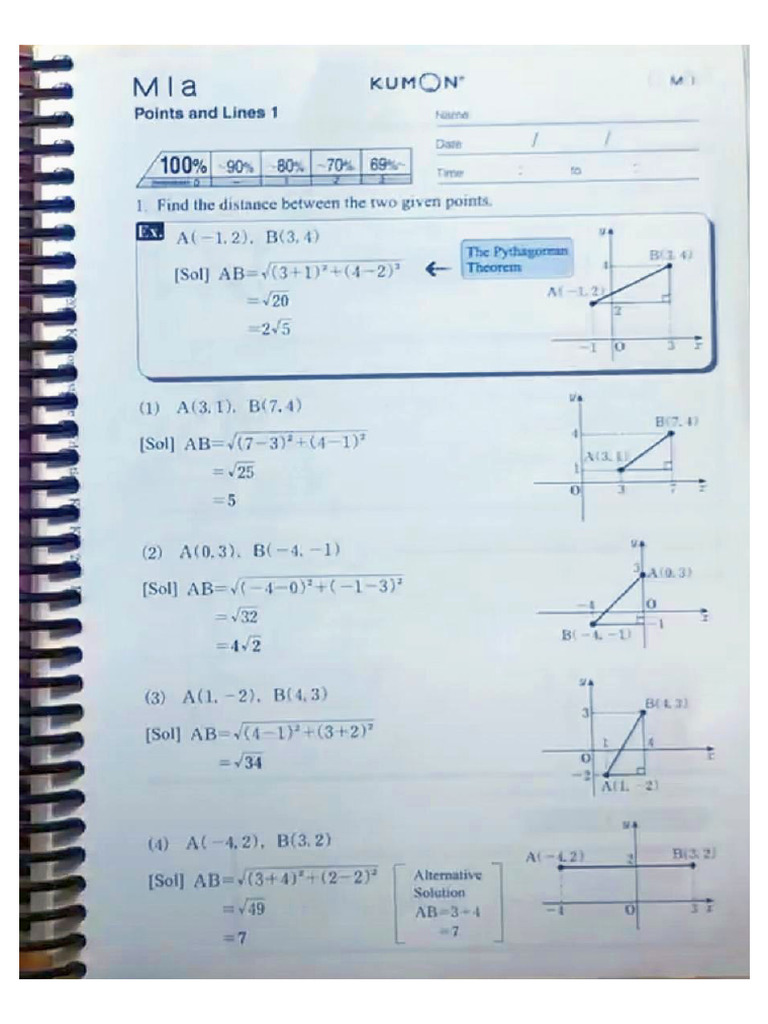 M1a
KUMON
M 1
Points and Lines 1
Name
Date / /
Time : to :
100% ~90% ~80% ~70% 69%~
0 — 1 2 3
1. Find the distance between the two given points.
Ex. A(−1, 2), B(3, 4)
[Sol] AB=√(3+1)²+(4−2)²
=√20
=2√5
The Pythagorean
Theorem
y
B(3, 4)
4
A(−1, 2)
2
−1 O 3 x
(1) A(3, 1), B(7, 4)
[Sol] AB=√(7−3)²+(4−1)²
=√25
=5
y
B(7, 4)
4
A(3, 1)
1
O 3 7 x
(2) A(0, 3), B(−4, −1)
[Sol] AB=√(−4−0)²+(−1−3)²
=√32
=4√2
y
3 A(0, 3)
−4 O x
−1
B(−4, −1)
(3) A(1, −2), B(4, 3)
[Sol] AB=√(4−1)²+(3+2)²
=√34
y
B(4, 3)
3
1 4
O x
−2
A(1, −2)
(4) A(−4, 2), B(3, 2)
[Sol] AB=√(3+4)²+(2−2)²
=√49
=7
Alternative
Solution
AB=3+4
=7
y
A(−4, 2) 2 B(3, 2)
−4 O 3 x